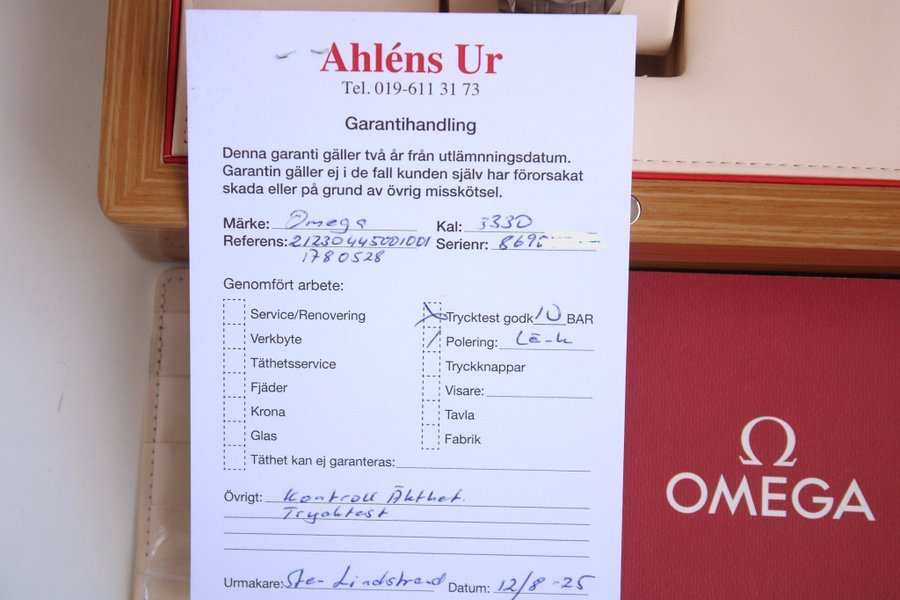 Ahléns Ur
Tel. 019-611 31 73
Garantihandling
Denna garanti gäller två år från utlämnningsdatum.
Garantin gäller ej i de fall kunden själv har förorsakat
skada eller på grund av övrig misskötsel.
Märke: Omega Kal: 3330
Referens: 21230445001001 Serienr: 8695
1780528
Genomfört arbete:
Service/Renovering
Verkbyte
Täthetsservice
Fjäder
Krona
Glas
Täthet kan ej garanteras:
X Trycktest godk 10 BAR
/ Polering: Länk
Tryckknappar
Visare:
Tavla
Fabrik
Övrigt: Kontroll Äkthet.
Trycktest
Urmakare: Sten Lindstrand Datum: 12/8-25
Ω
OMEGA